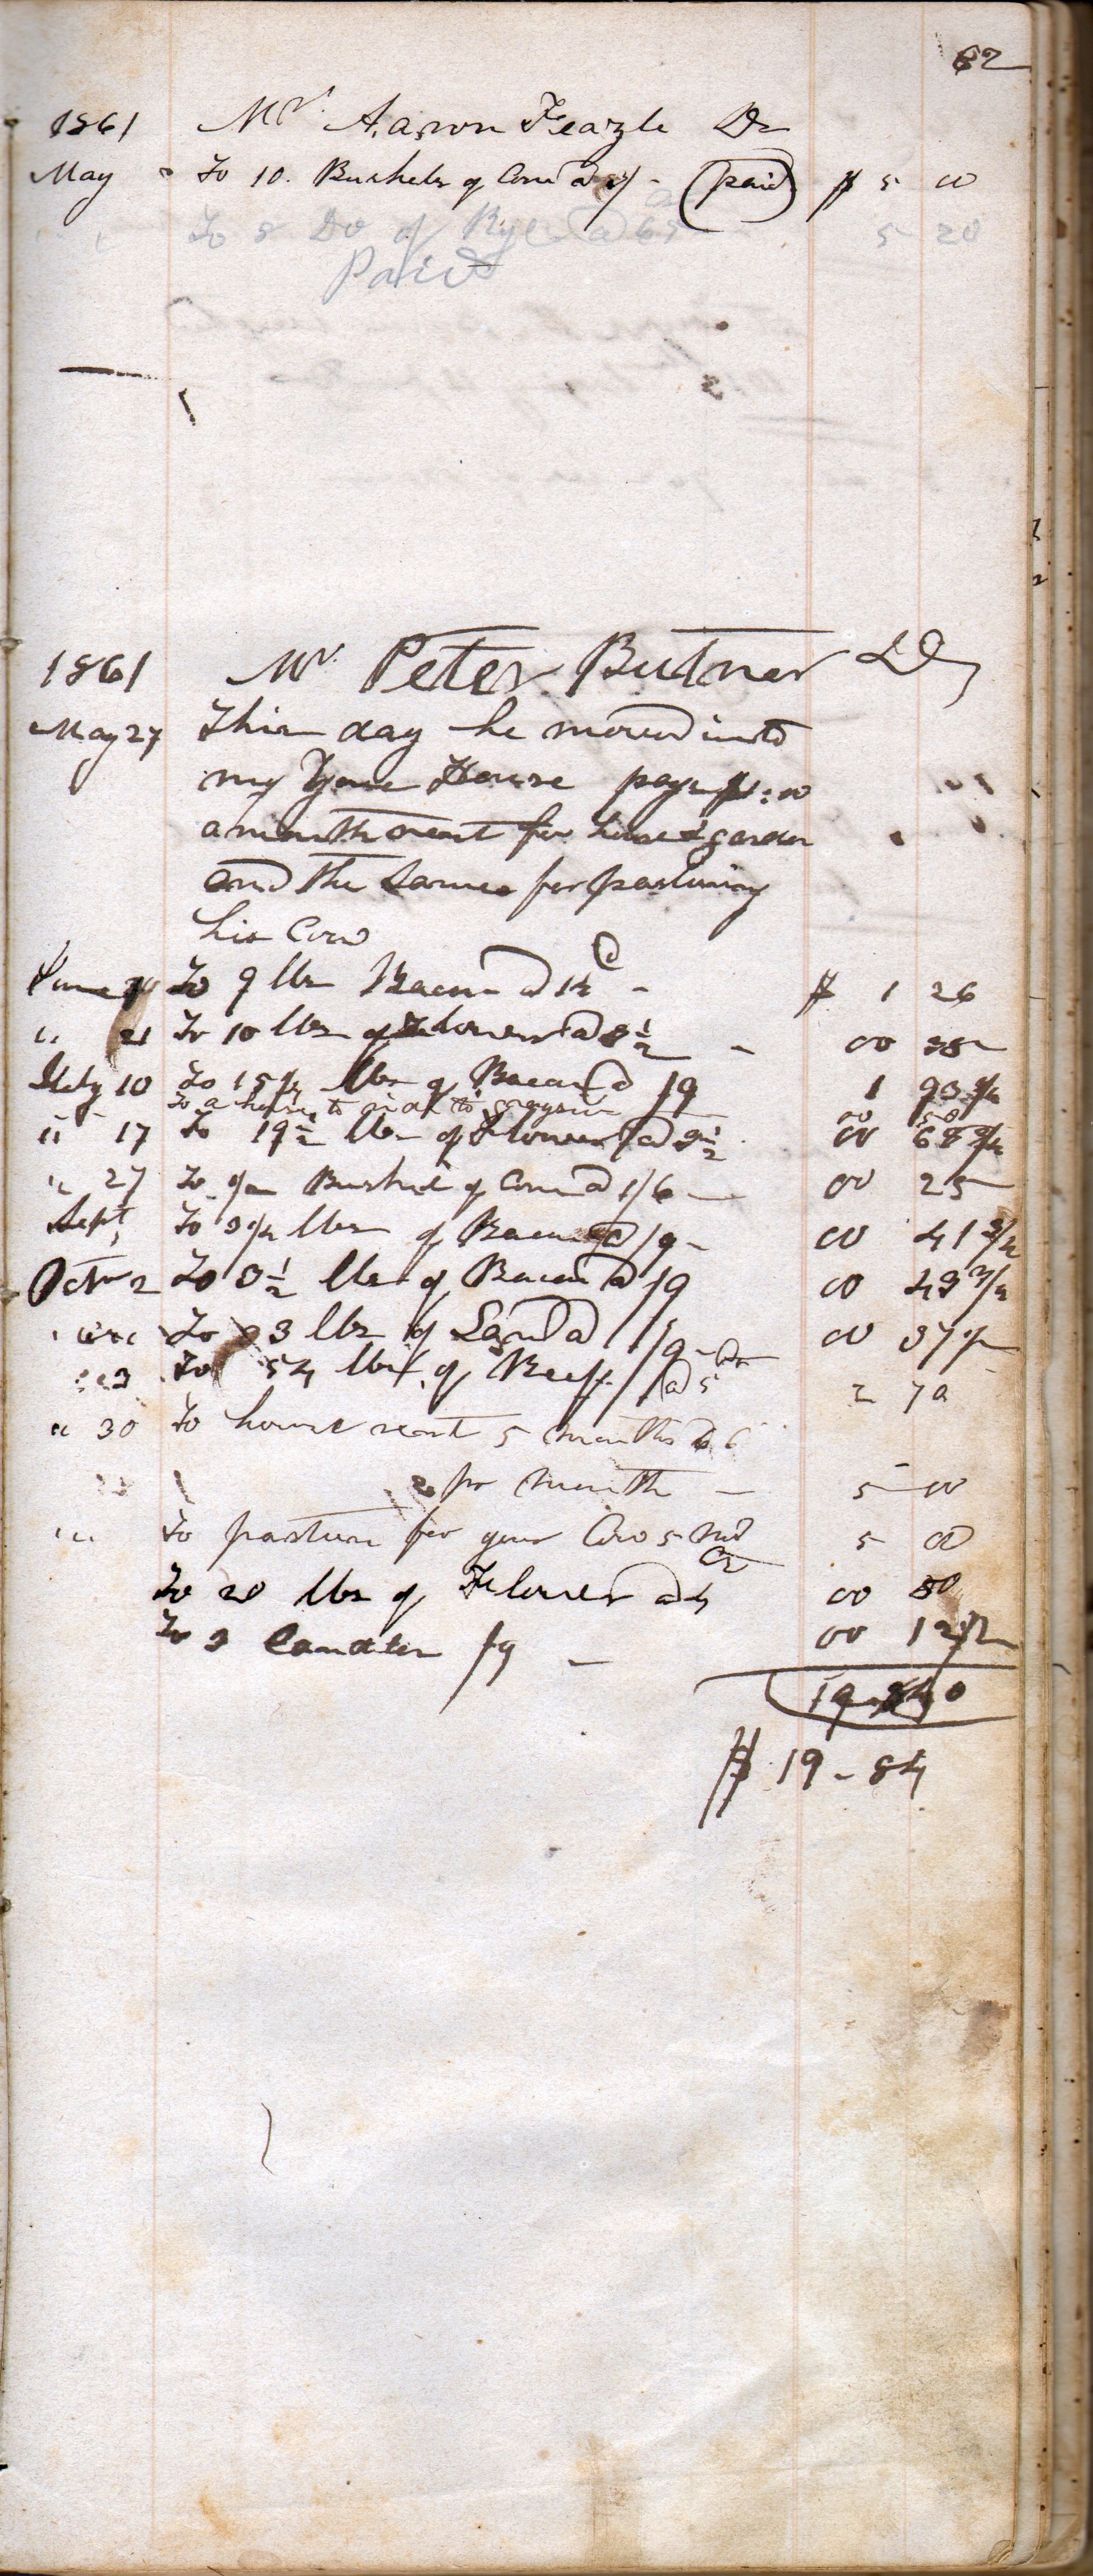 62
1861 Mr. Aaron Feazle Dr
May To 10. Bushels of Corn @ 3/- (paid) $ 5 00
To 8 Do of Rye @ 65 5 20
Paid
1861 Mr. Peter Butner Dr
May 27 This day he moved into
my House pays $1:00
a month rent for house & garden
and the same for pasturing
his Cow
June To 9 lbs Bacon @ 14 c - $ 1 26
" 21 To 10 lbs of Flower @ 3½ - 00 35
July 10 To 15½ lbs of Bacon @ /9 1 93 3/4
To a horse to to 00 50
" 17 To 19½ lbs of Flower @ 3½ 00 68 2/4
" 27 To 1/2 Bushel of Corn @ 1/6 - 00 25
Sept, To lbs of Bacon @ /9 - 00 41 3/4
Octr 2 To 3½ lbs of Bacon @ /9 00 43 3/4
To 3 lbs of Lard @ /9 - 00 37 1/2
" 3 To 54 lbs of Beef @ 5 2 70
" 30 To house rent 5 months @ 6
pr month - 5 00
" To pasture for your Cow 5 mo 5 00
To 20 lbs of Flower @ 4 00 80
To 3 Candles /9 - 00 12 1/2
19 84 0
$ 19 - 84